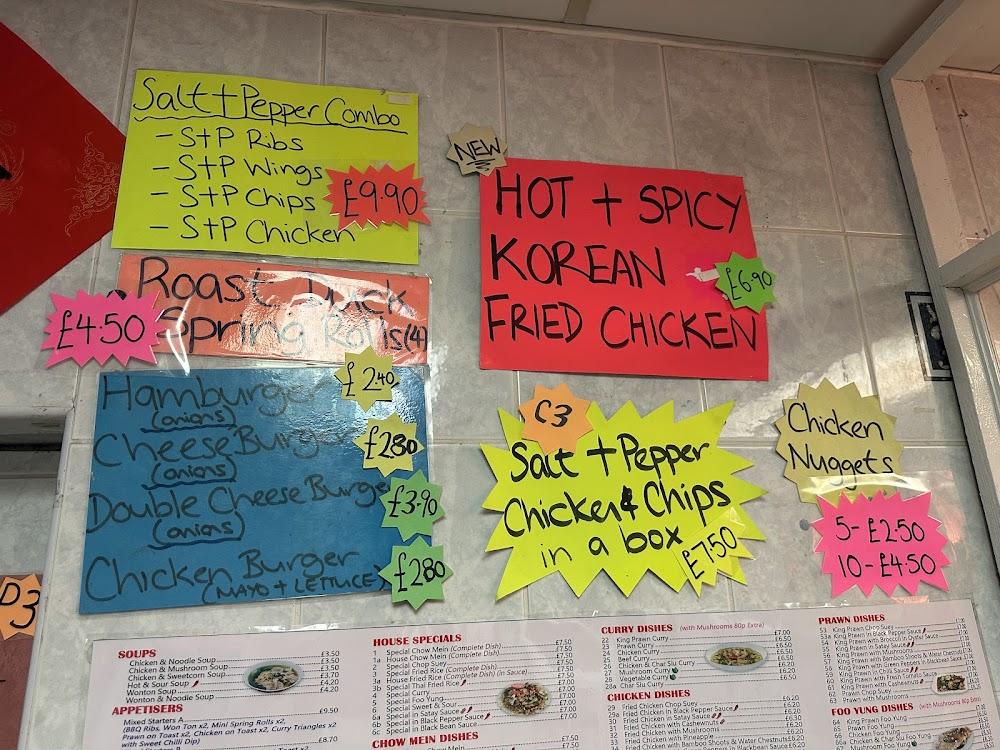 Salt + Pepper Combo
- S+P Ribs
- S+P Wings
- S+P Chips
- S+P Chicken
£9.90
Roast Duck
Spring Rolls (4)
£4.50
Hamburger £2.40
(onions)
Cheese Burger £2.80
(onions)
Double Cheese Burger £3.90
(onions)
Chicken Burger £2.80
(MAYO + LETTUCE)
NEW
HOT + SPICY
KOREAN
FRIED CHICKEN
£6.90
C3
Salt + Pepper
Chicken & Chips
in a box
£7.50
Chicken
Nuggets
5- £2.50
10- £4.50
D3
SOUPS
Chicken & Noodle Soup £3.50
Chicken & Mushroom Soup £3.50
Chicken & Sweetcorn Soup £3.70
Hot & Sour Soup £4.20
Wonton Soup £4.20
Wonton & Noodle Soup
APPETISERS
Mixed Starters A £9.50
(BBQ Ribs, Won Ton x2, Mini Spring Rolls x2,
Prawn on Toast x2, Chicken on Toast x2, Curry Triangles x2
with Sweet Chilli Dip)
£8.70
HOUSE SPECIALS
1 Special Chow Mein (Complete Dish) £7.50
1a House Chow Mein (Complete Dish) £7.50
2 Special Chop Suey £7.50
3 Special Fried Rice (Complete Dish) £7.50
3a House Fried Rice (Complete Dish) (In Sauce) £7.50
3b Special Thai Fried Rice £7.50
4 Special Curry £7.00
5 Special Foo Yung £7.00
6 Special Sweet & Sour £7.00
6a Special in Satay Sauce £7.00
6b Special in Black Pepper Sauce £7.00
6c Special in Black Bean Sauce £7.00
CHOW MEIN DISHES
£7.50
CURRY DISHES (with Mushrooms 80p Extra)
22 King Prawn Curry £7.00
23 Prawn Curry £6.50
24 Chicken Curry £6.50
25 Beef Curry £6.50
26 Chicken & Char Siu Curry £6.50
27 Mushroom Curry £6.20
28 Vegetable Curry £6.20
28a Char Siu Curry £6.50
CHICKEN DISHES
29 Fried Chicken Chop Suey £6.20
29a Fried Chicken in Black Pepper Sauce £6.20
30 Chicken in Satay Sauce £6.20
31 Fried Chicken with Cashewnuts
32 Fried Chicken with Mushroom
33 Fried Chicken with Pineapple
33 Fried Chicken with Bamboo Shoots & Water Chestnuts £6.20
PRAWN DISHES
53 King Prawn Chop Suey
53a King Prawn in Black Pepper Sauce
54 King Prawn with Broccoli in Oyster Sauce
55 King Prawn in Satay Sauce
56 King Prawn with Mushroom
57 King Prawn with Bamboo Shoots & Water Chestnuts
59 King Prawn with Green Peppers in Blackbean Sauce
60 King Prawn with Fresh Tomato Sauce
61 King Prawn with Cashewnuts
62 Prawn Chop Suey
63 Prawn with Mushroom
FOO YUNG DISHES (with Mushrooms 80p Extra)
64 King Prawn Foo Yung
65 Prawn Foo Yung
66 Chicken Foo Yung